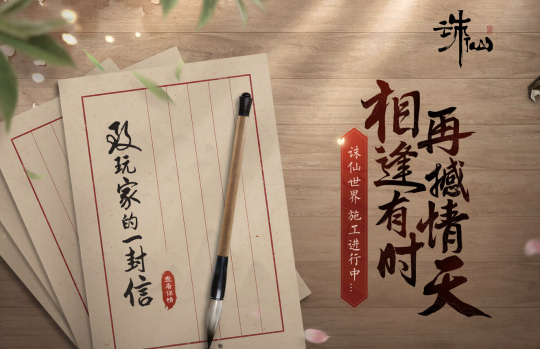 诛仙
相逢有时
再撼情天
诛仙世界 施工进行中...
致玩家的一封信
查看详情